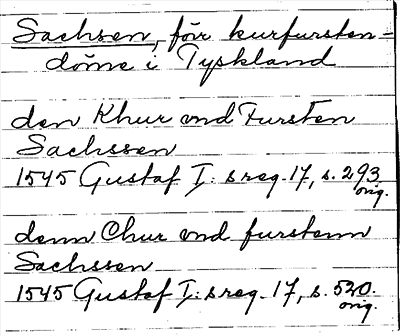 Sachsen, förr kurfursten-
döme i Tyskland
den Khur vnd Fursten
Sachssen
1545 Gustaf I: s reg. 17, s. 293
orig.
denn Chur vnd furstenn
Sachssen
1545 Gustaf I: s reg. 17, s. 530.
orig.